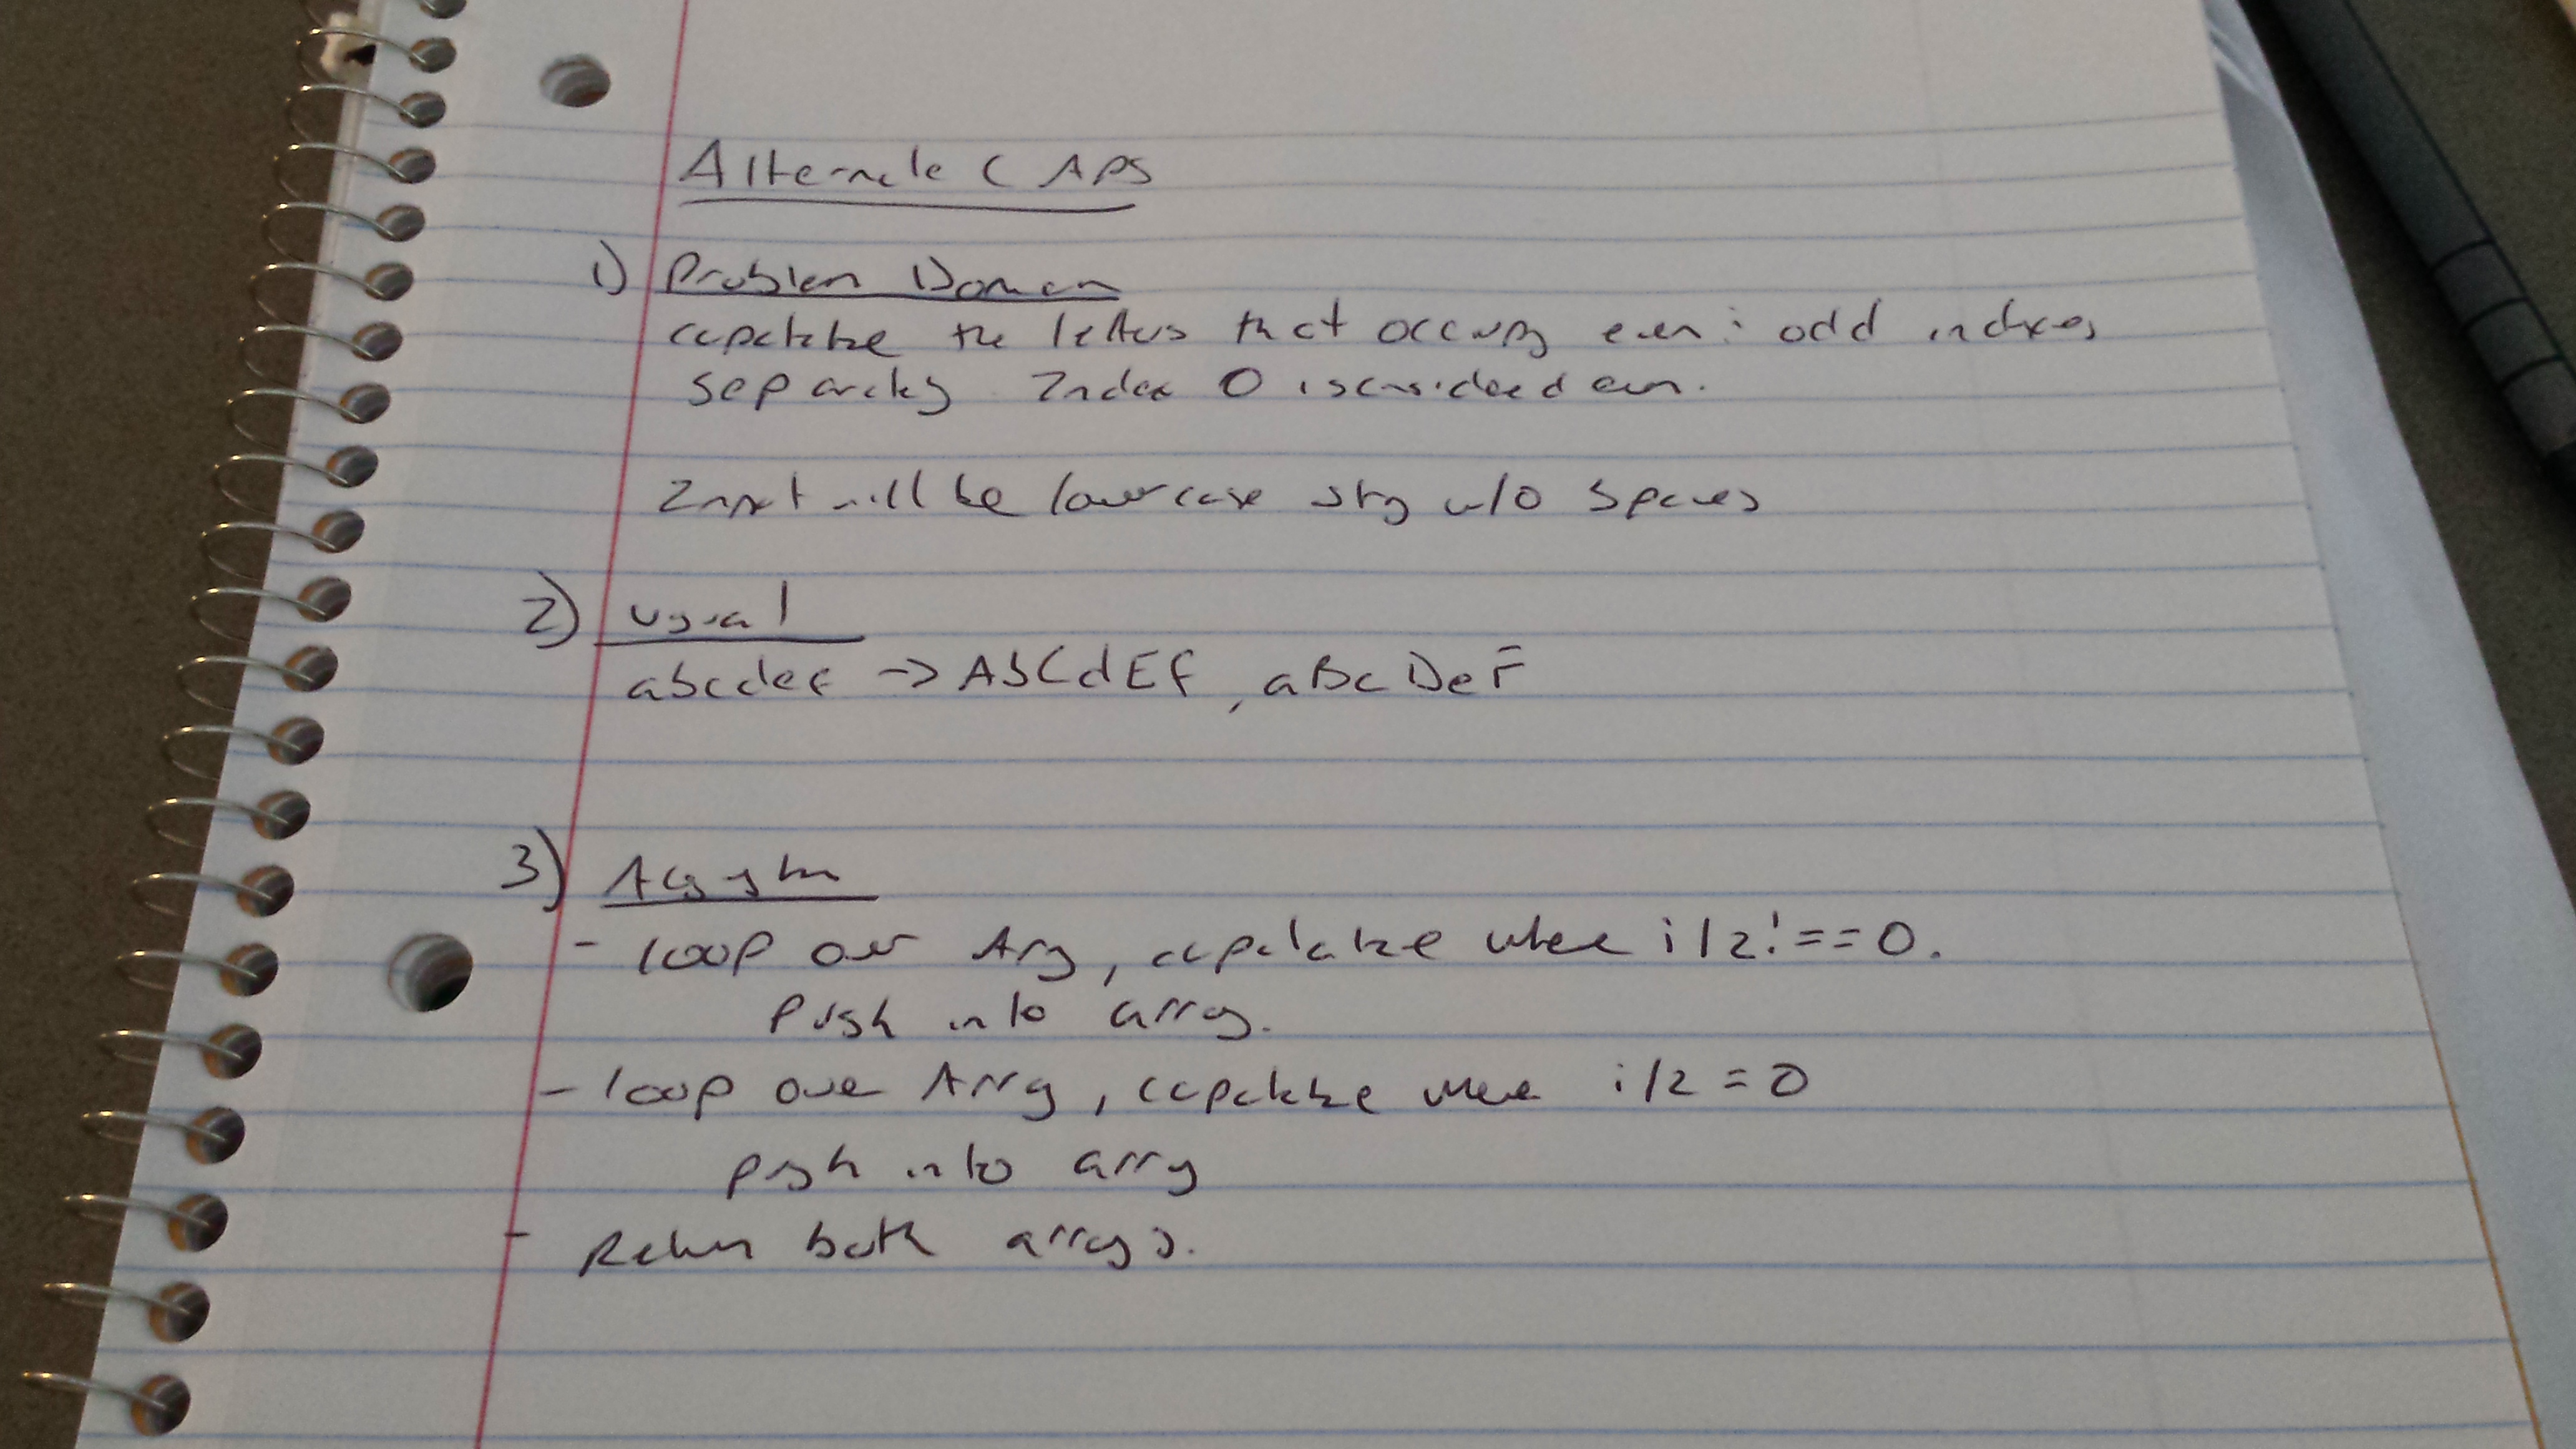 Alternate CAPS
1) Problem Domain
capitalize the letters that occupy even : odd indexes
separately. Index 0 is considered even.
Input will be lowercase string w/o spaces
2) visual
abcdef -> AbCdEf, aBcDeF
3) Algorithm
- loop over Array, capitalize where i/2!==0.
push into array.
- loop over Array, capitalize where i/2=0
push into array
- Return both arrays.